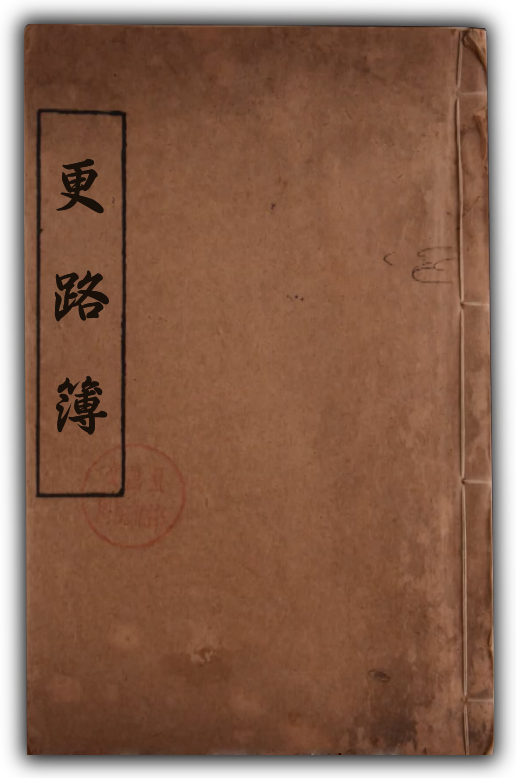 更路簿